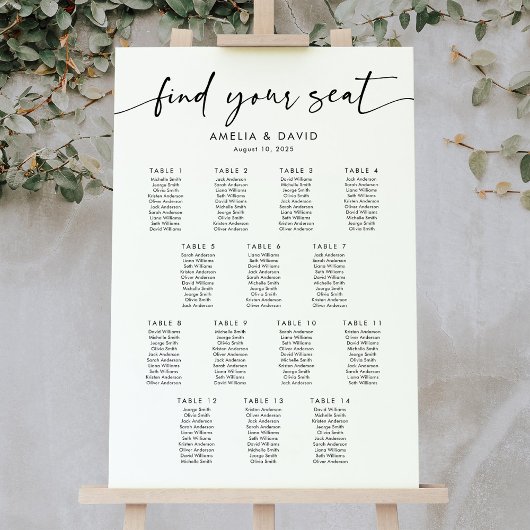 find your seat
AMELIA & DAVID
August 10, 2025
TABLE 1
Michelle Smith
Jeorge Smith
Olivia Smith
Jack Anderson
Sarah Anderson
Liana Williams
Seth Williams
Kristen Anderson
Oliver Anderson
David Williams
TABLE 2
Jack Anderson
Sarah Anderson
Liana Williams
Seth Williams
Kristen Anderson
Oliver Anderson
David Williams
Michelle Smith
Jeorge Smith
Olivia Smith
TABLE 3
David Williams
Michelle Smith
Jeorge Smith
Olivia Smith
Jack Anderson
Sarah Anderson
Liana Williams
Seth Williams
Kristen Anderson
Oliver Anderson
TABLE 4
Jack Anderson
Sarah Anderson
Liana Williams
Seth Williams
Kristen Anderson
Oliver Anderson
David Williams
Michelle Smith
Jeorge Smith
Olivia Smith
TABLE 5
Sarah Anderson
Liana Williams
Seth Williams
Kristen Anderson
Oliver Anderson
David Williams
Michelle Smith
Jeorge Smith
Olivia Smith
Jack Anderson
TABLE 6
Liana Williams
Seth Williams
Kristen Anderson
Oliver Anderson
David Williams
Michelle Smith
Jeorge Smith
Olivia Smith
Jack Anderson
Sarah Anderson
TABLE 7
Jack Anderson
Sarah Anderson
Liana Williams
Seth Williams
David Williams
Michelle Smith
Jeorge Smith
Olivia Smith
Kristen Anderson
Oliver Anderson
TABLE 8
David Williams
Michelle Smith
Jeorge Smith
Olivia Smith
Jack Anderson
Sarah Anderson
Liana Williams
Seth Williams
Kristen Anderson
Oliver Anderson
TABLE 9
Michelle Smith
Jeorge Smith
Olivia Smith
Jack Anderson
Sarah Anderson
Liana Williams
Seth Williams
Kristen Anderson
Oliver Anderson
David Williams
TABLE 10
Sarah Anderson
Liana Williams
Seth Williams
Kristen Anderson
Oliver Anderson
David Williams
Michelle Smith
Jeorge Smith
Olivia Smith
Jack Anderson
TABLE 11
David Williams
Michelle Smith
Jeorge Smith
Olivia Smith
Jack Anderson
Sarah Anderson
Liana Williams
Seth Williams
Kristen Anderson
Oliver Anderson
TABLE 12
Jeorge Smith
Olivia Smith
Jack Anderson
Sarah Anderson
Liana Williams
Seth Williams
Kristen Anderson
Oliver Anderson
David Williams
Michelle Smith
TABLE 13
Olivia Smith
Jack Anderson
Sarah Anderson
Liana Williams
Seth Williams
Kristen Anderson
Oliver Anderson
David Williams
Michelle Smith
Jeorge Smith
TABLE 14
David Williams
Michelle Smith
Olivia Smith
Jack Anderson
Sarah Anderson
Liana Williams
Seth Williams
Jeorge Smith
Kristen Anderson
Oliver Anderson